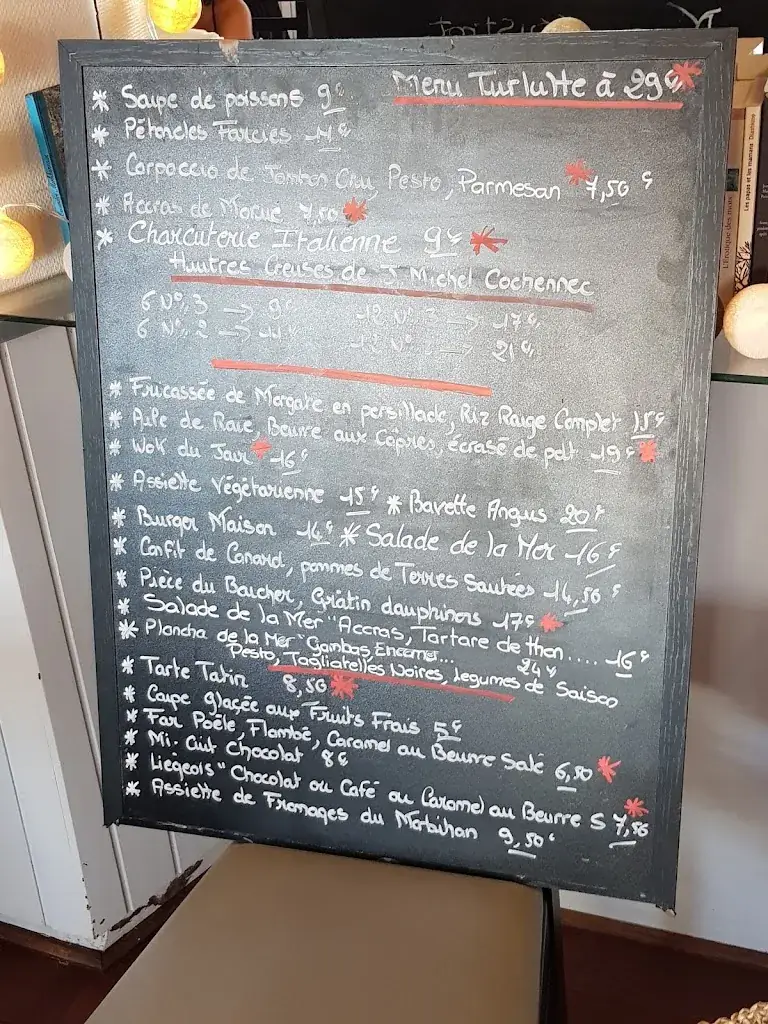 * Soupe de poissons 9€
Menu Turlutte à 29€*
* Pétoncles Farcies 11€
* Carpaccio de Jambon Cru, Pesto, Parmesan * 7,50 €
* Accras de Morue 7,50 *
* Charcuterie Italienne 9€ *
Huitres Creuses de J. Michel Cochennec
6 N°. 3 → 9€ 12 N° → 17€
6 N°. 2 → 11€ 12 N° → 21€
* Fricassée de Margate en persillade, Riz Rouge Complet 15€
* Aile de Raie, Beurre aux Câpres, écrasé de pdt 19€ *
* Wok du Jour * 16€
* Assiette Végétarienne 15€ * Bavette Angus 20€
* Burger Maison 14€ * Salade de la Mer 16€
* Confit de Canard, pommes de Terres Sautées 14,50 €
* Pièce du Boucher, Gratin dauphinois 17€ *
* Salade de la Mer "Accras, Tartare de thon.... 16€
* Plancha de la Mer "Gambas, Encornet... 24€
Pesto, Tagliatelles Noires, légumes de Saison
* Tarte Tatin 8,50 *
* Coupe glaçée aux Fruits Frais 5€
* Far Poêlé, Flambé, Caramel au Beurre Salé 6,50 *
* Mi. Cuit Chocolat 8€
* Liégeois " Chocolat ou Café ou Caramel au Beurre S 7,50 *
* Assiette de Fromages du Morbihan 9,50€
L'érotique des mots
Les papas et les mamans